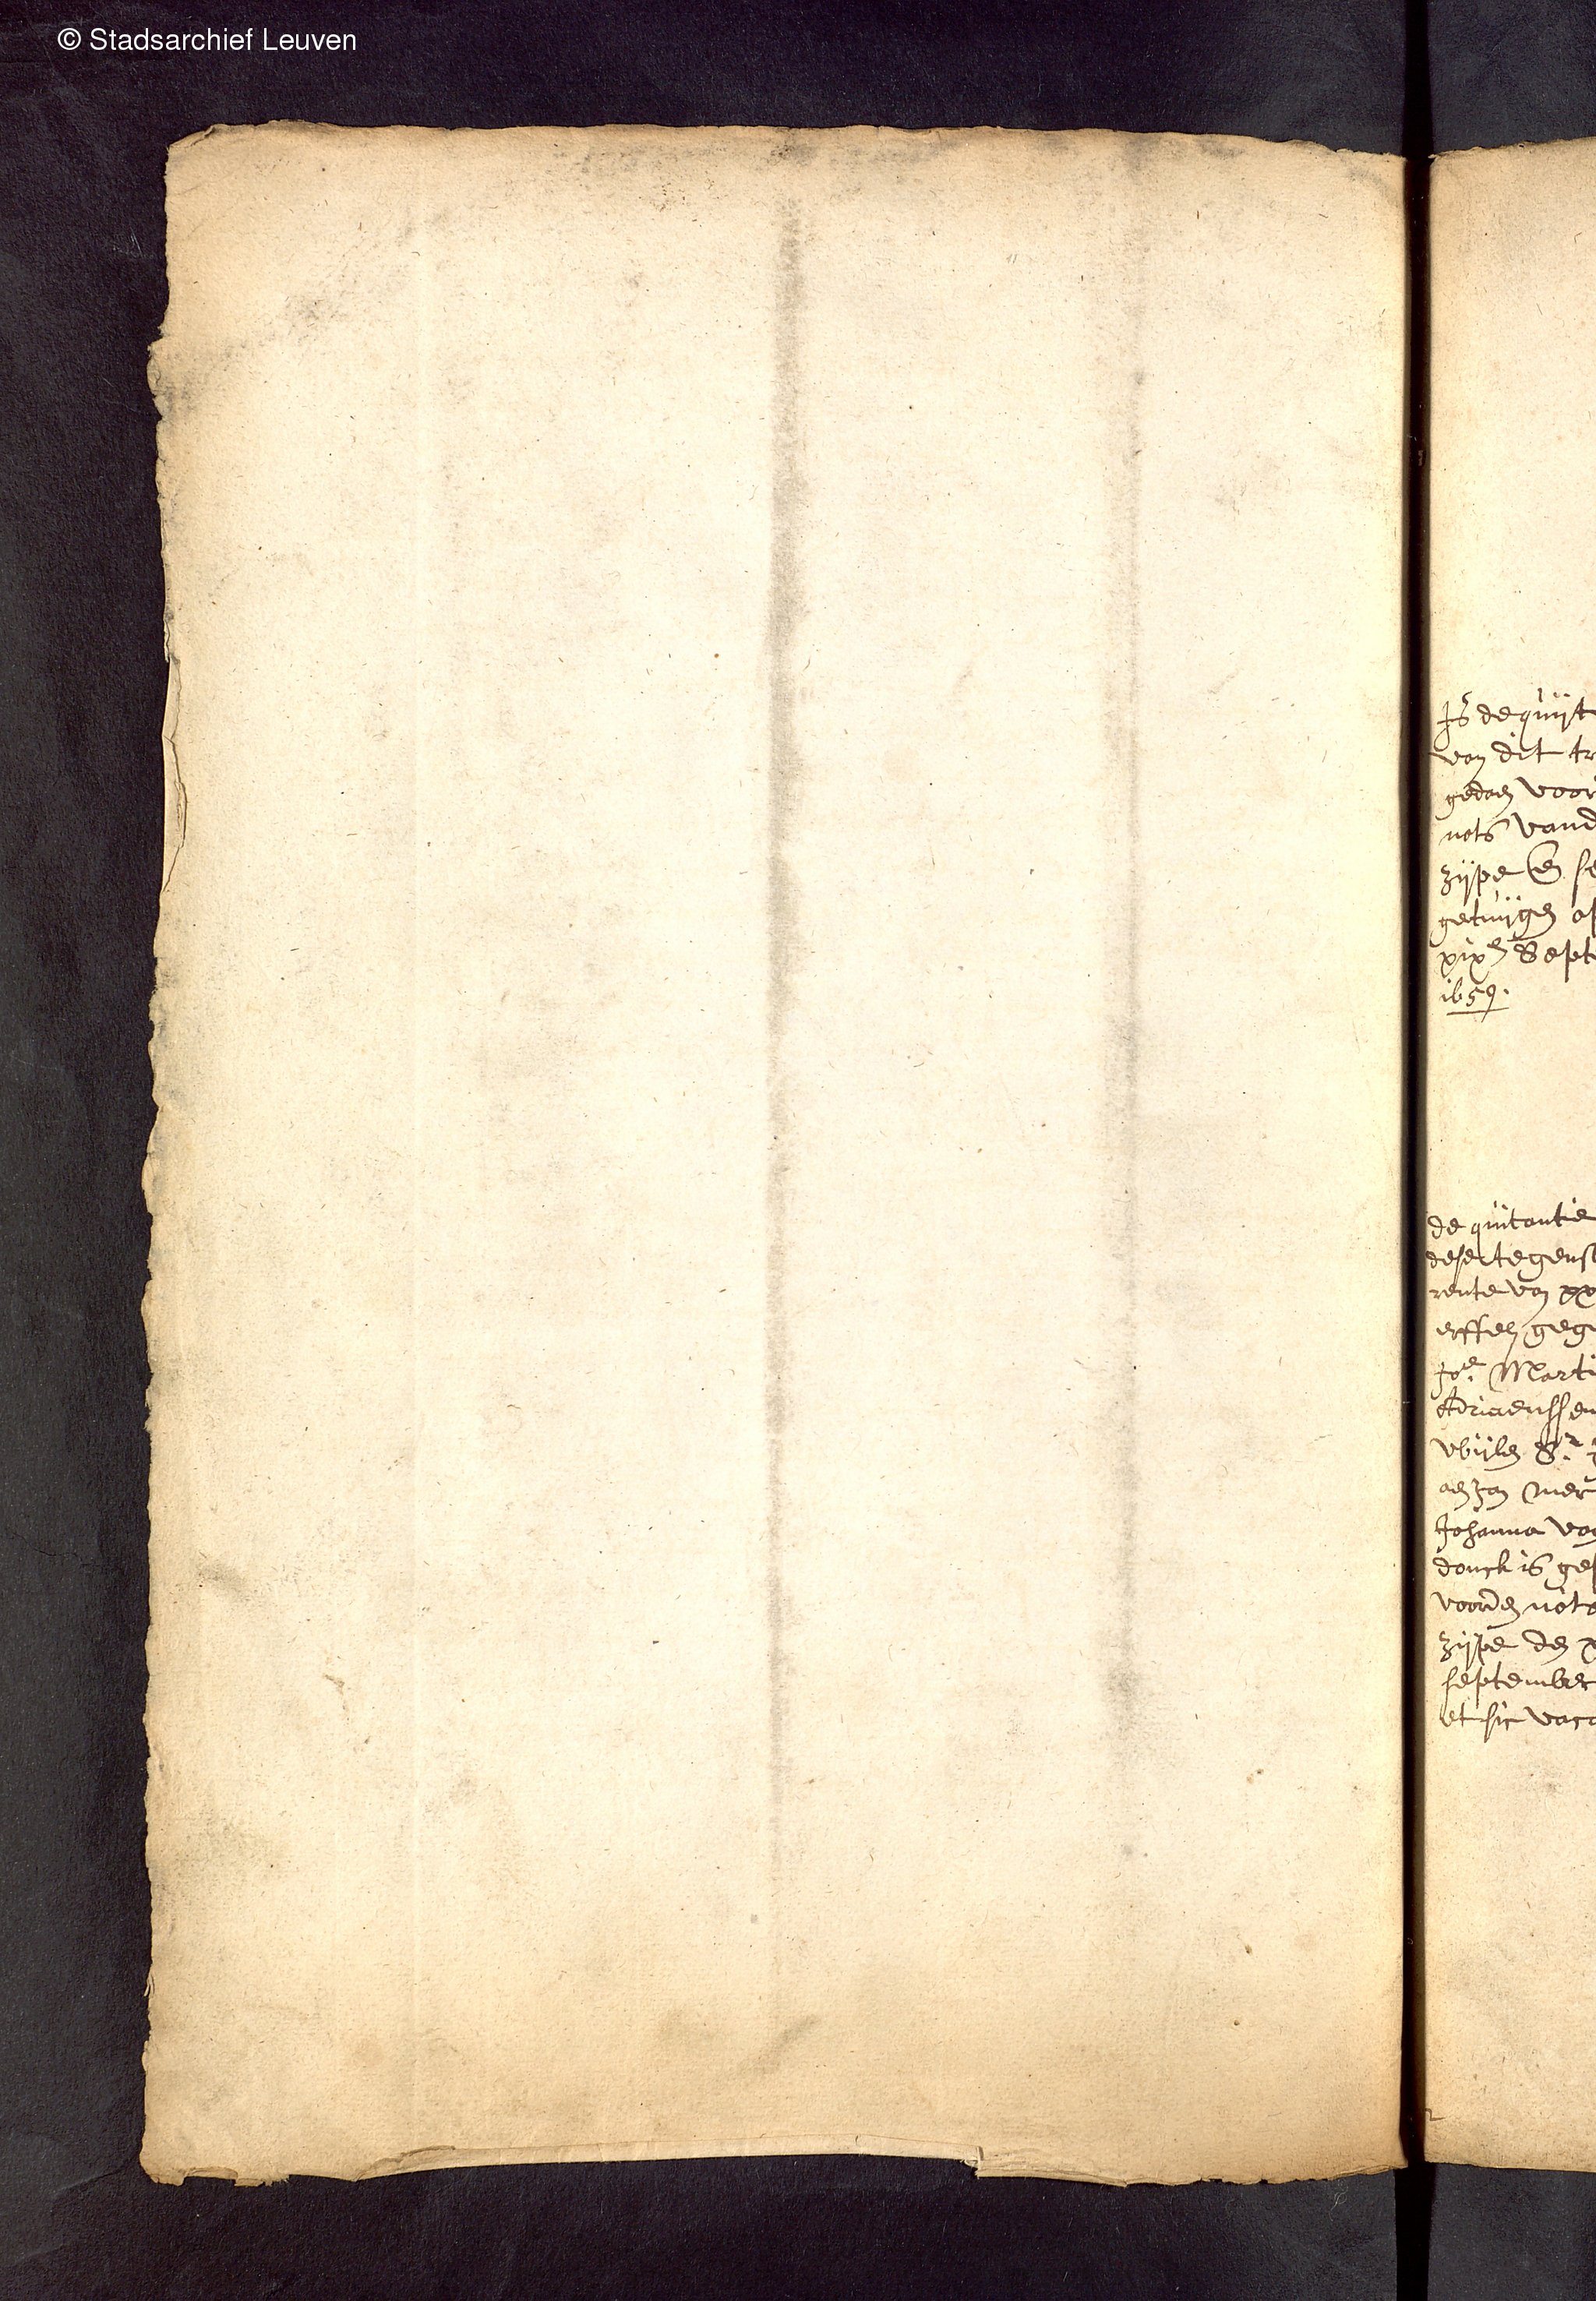 © Stadsarchief Leuven
Is de quijt
van dit tr
gedaen voor
nots vand
Zijpe en se
getuijgen op
xixen Septe
1659.
de quitantie
dese tegens
rente van xx
erffel. gege
Joe. Marti
Adriaenssen
wijlen Sr. J
aen Jan mer
Johanna va
donck is ges
voorden nota
Zijpe den x
september
et sic vaca